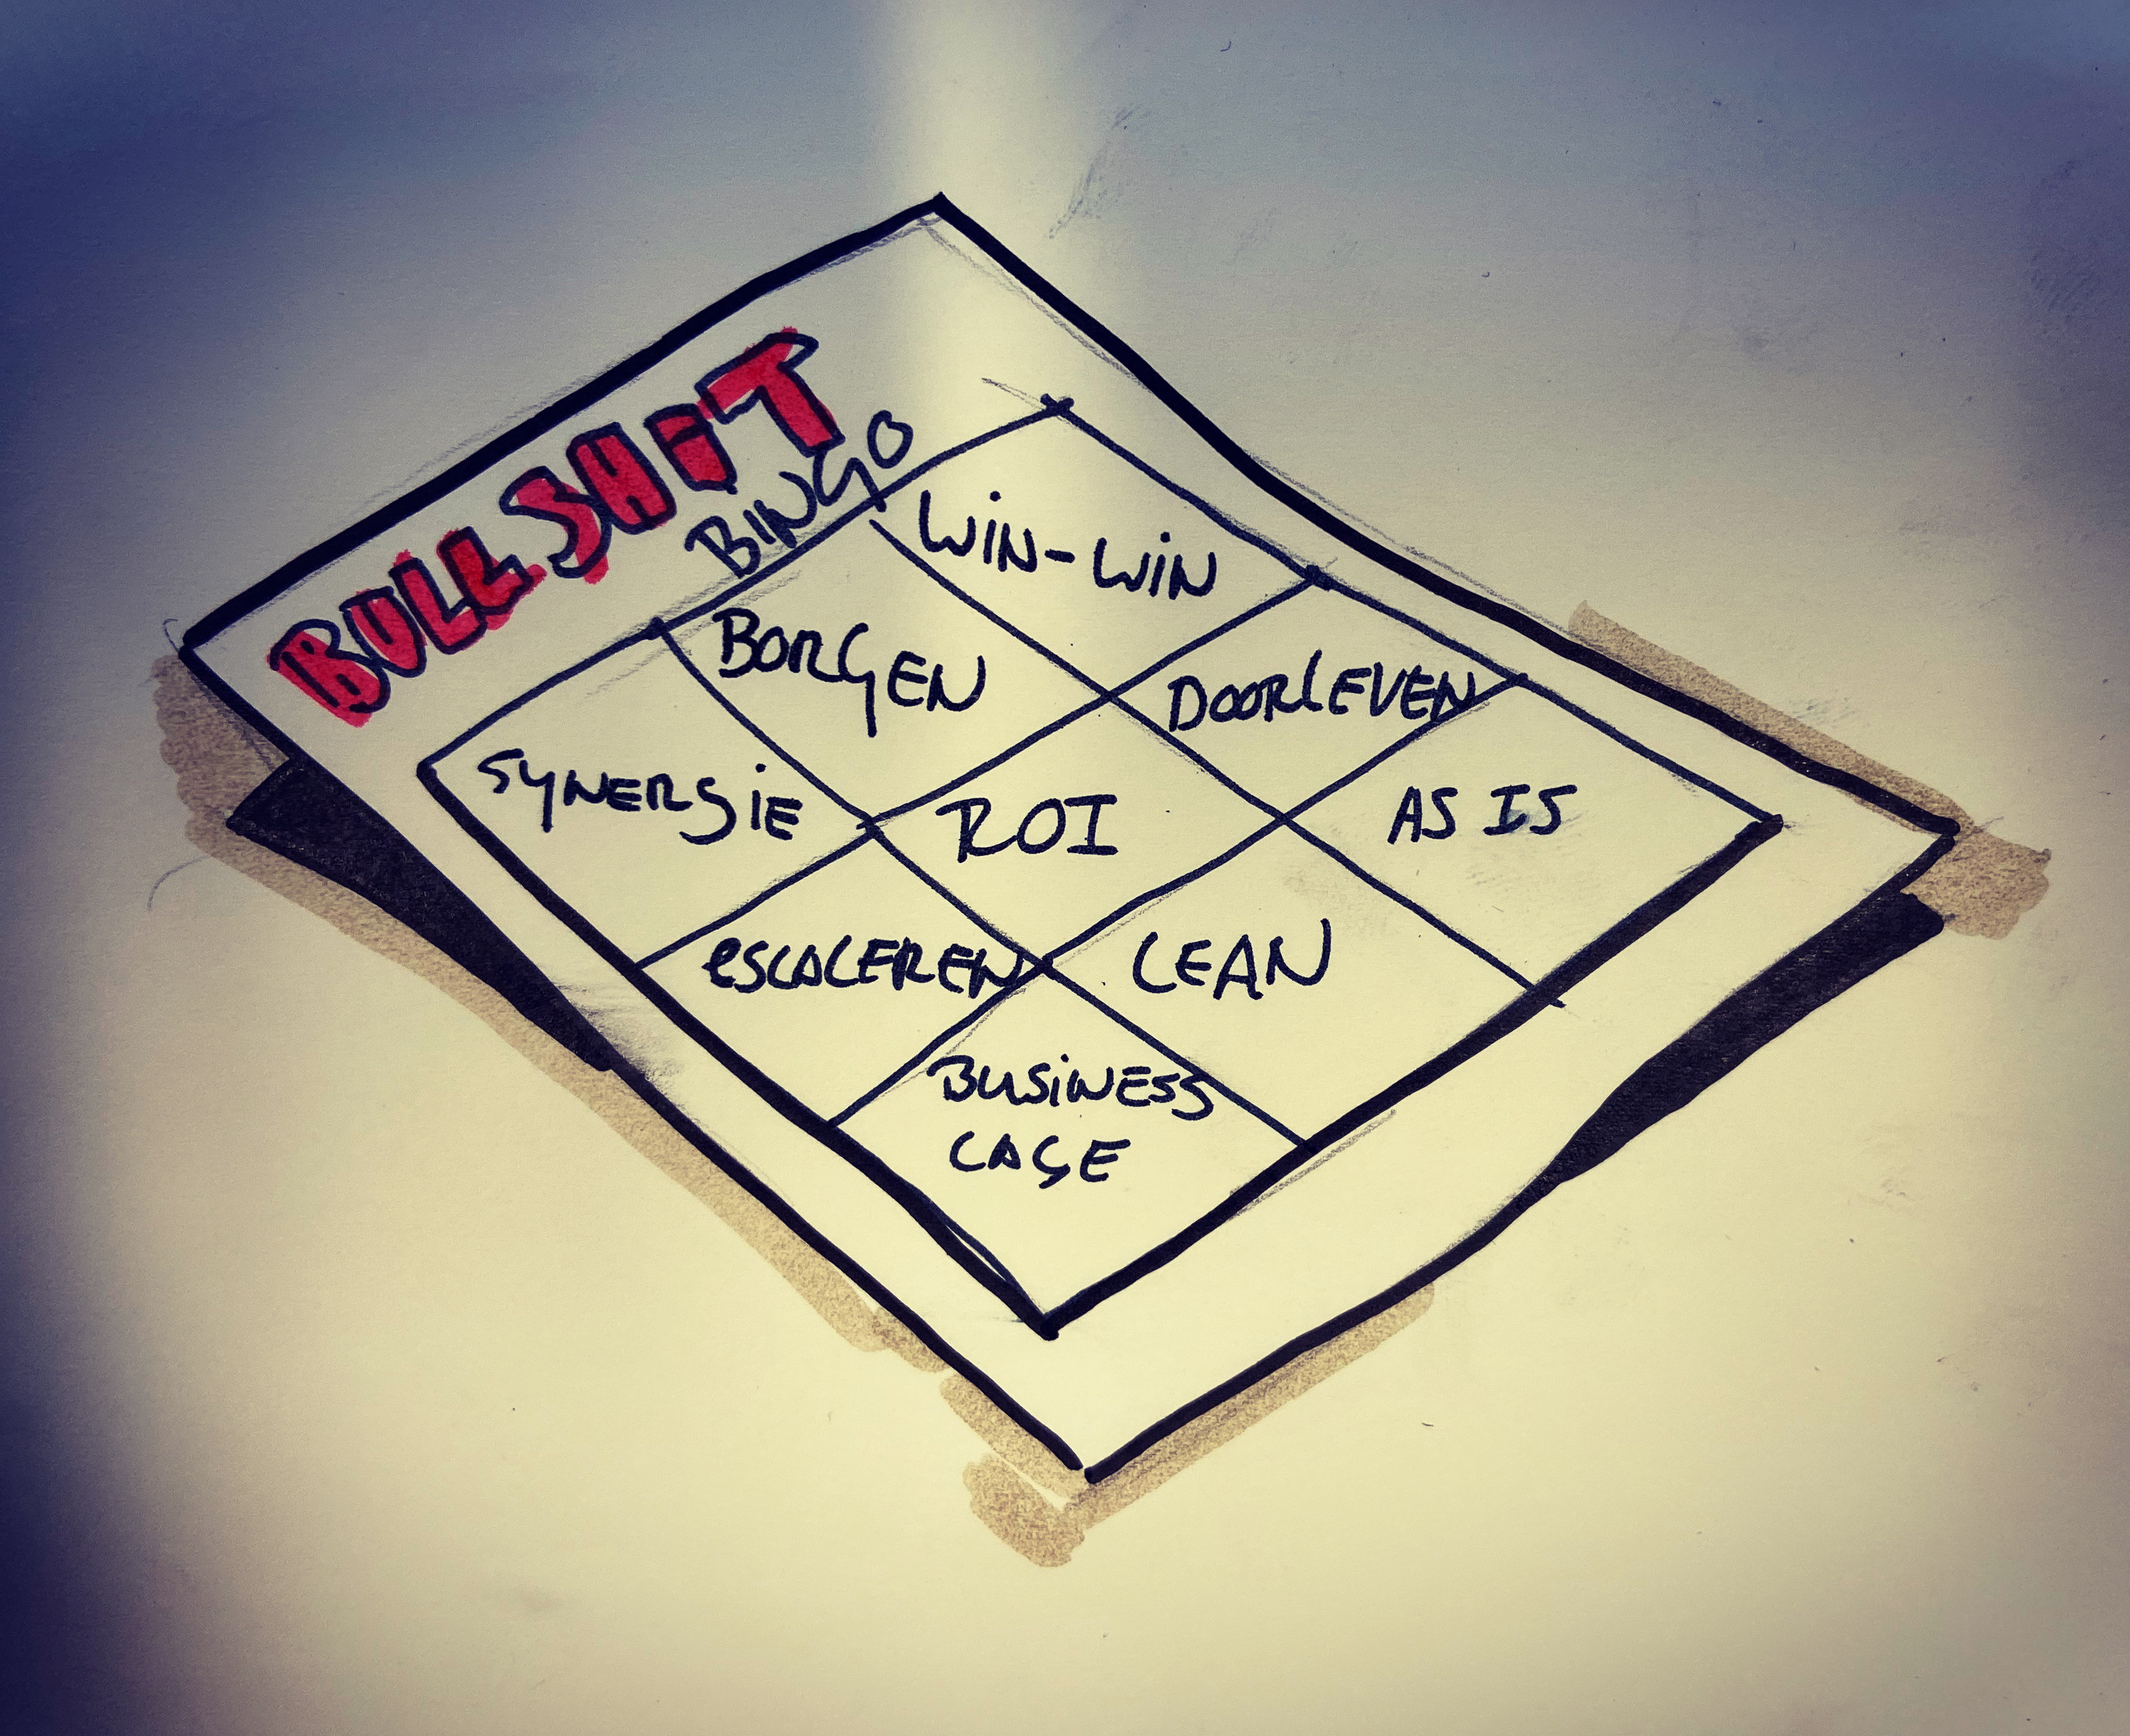 BULLSHIT
BINGO
SYNERGIE
BORGEN
WIN-WIN
ESCALEREN
ROI
DOORLEVEN
BUSINESS
CASE
LEAN
AS IS